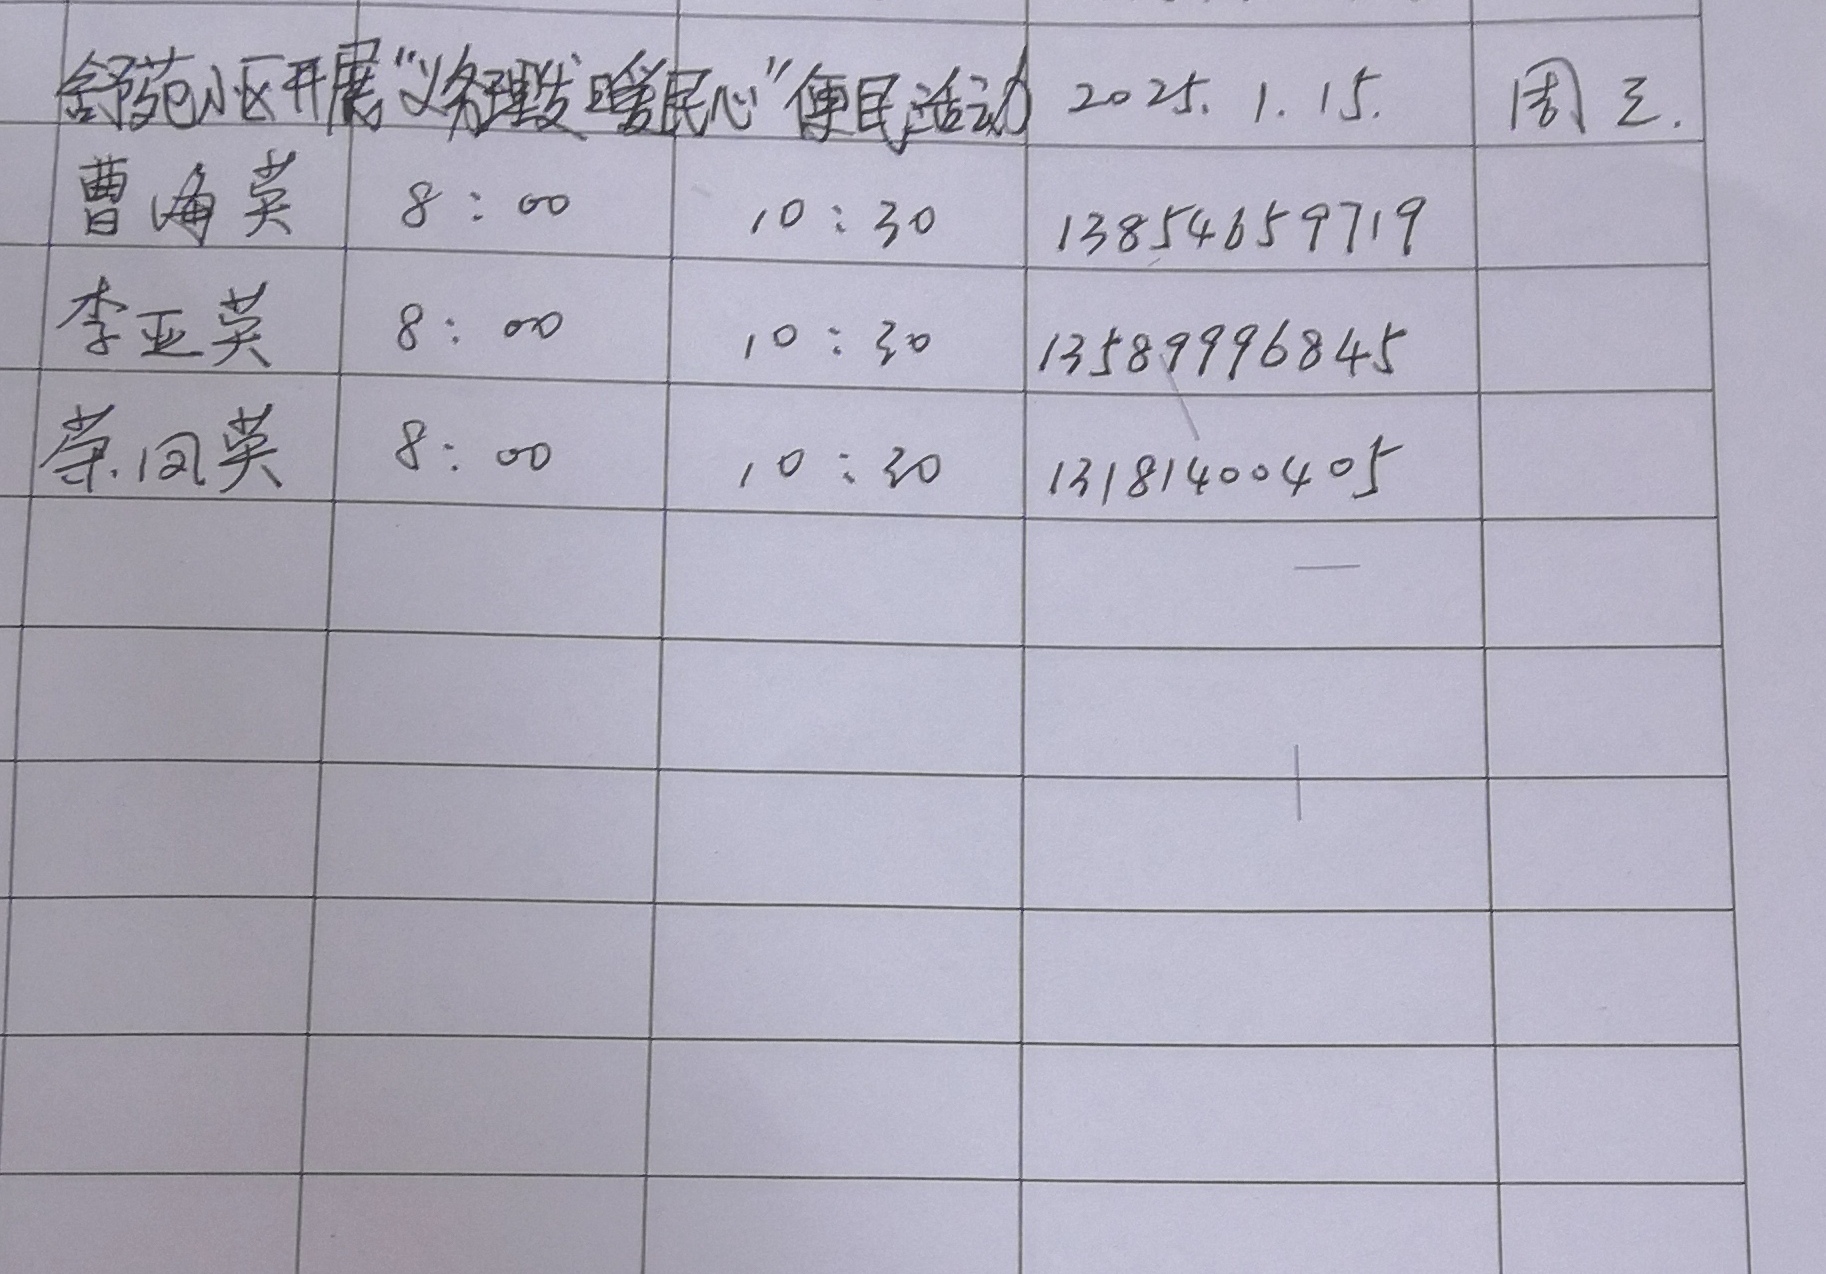 舒苑小区开展“义务理发 暖民心”便民活动 2025.1.15. 周三.
曹海英 8:00 10:30 13854659719
李亚英 8:00 10:30 13589996845
荣凤英 8:00 10:30 13181400405